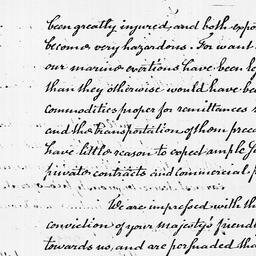 been greatly injured, and both expo
become very hazardous. For want
our marine exertions have been le
than they otherwise would have bee
commodities proper for remittances
and the transportation of them prec
have little reason to expect ample
private contracts and commercial p
We are impressed with th
conviction of your Majesty's friend
towards us, and are persuaded tha